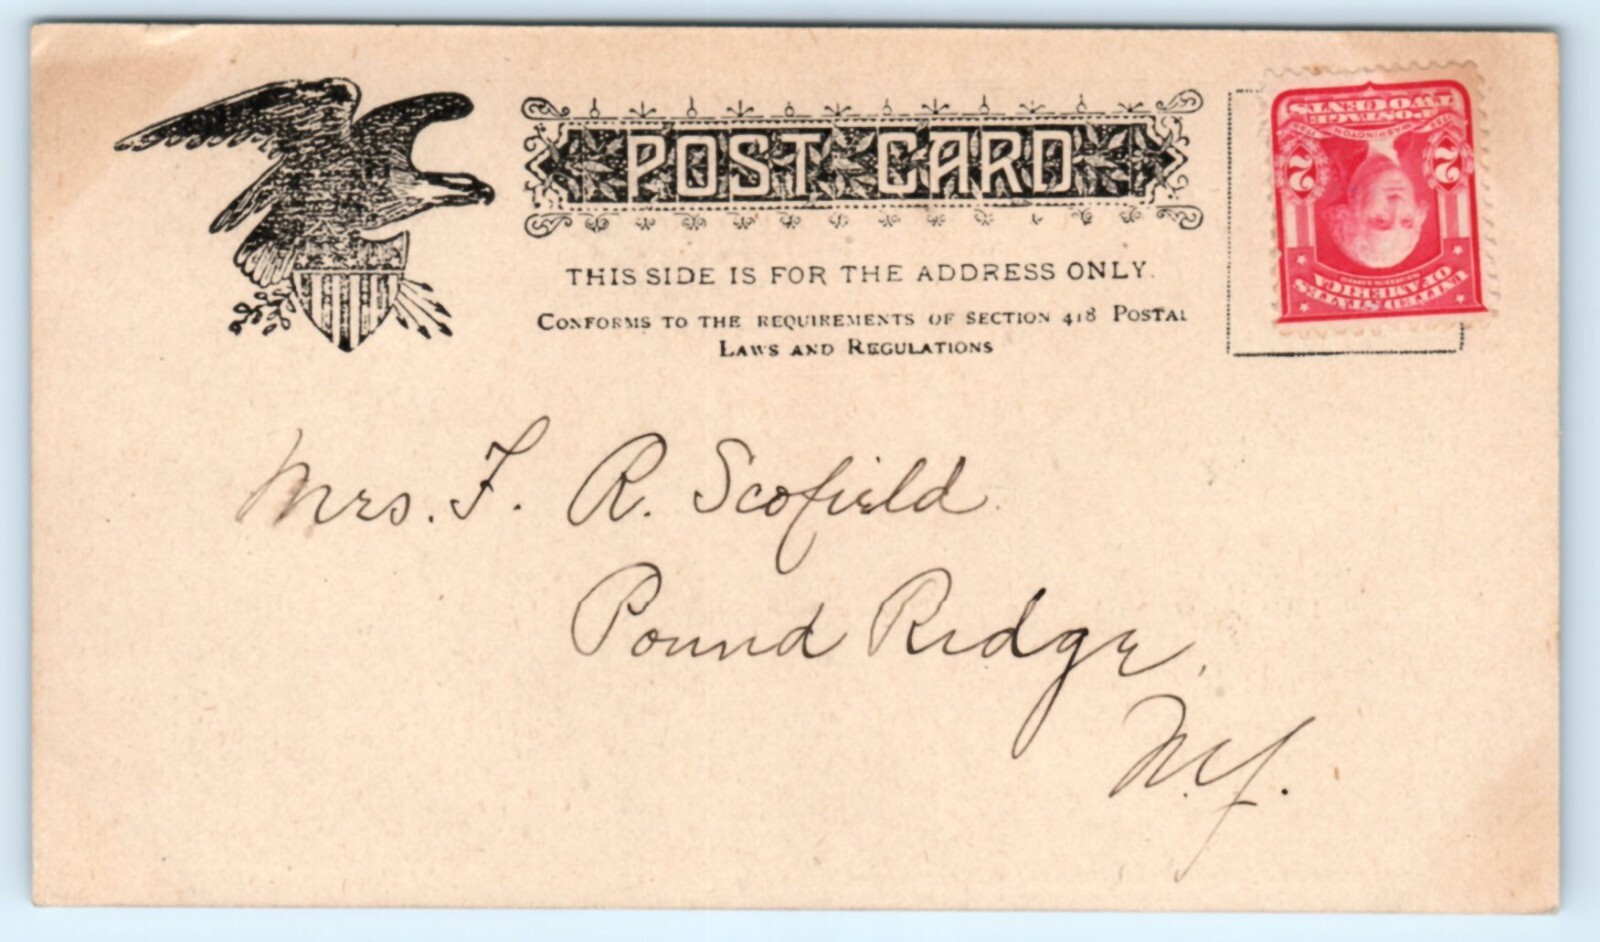 POST CARD
THIS SIDE IS FOR THE ADDRESS ONLY.
CONFORMS TO THE REQUIREMENTS OF SECTION 418 POSTAL
LAWS AND REGULATIONS
UNITED STATES
OF AMERICA
SERIES 1902
2 2
1732 WASHINGTON 1799
POSTAGE
TWO CENTS
Mrs. F. R. Scofield
Pound Ridge,
N.Y.